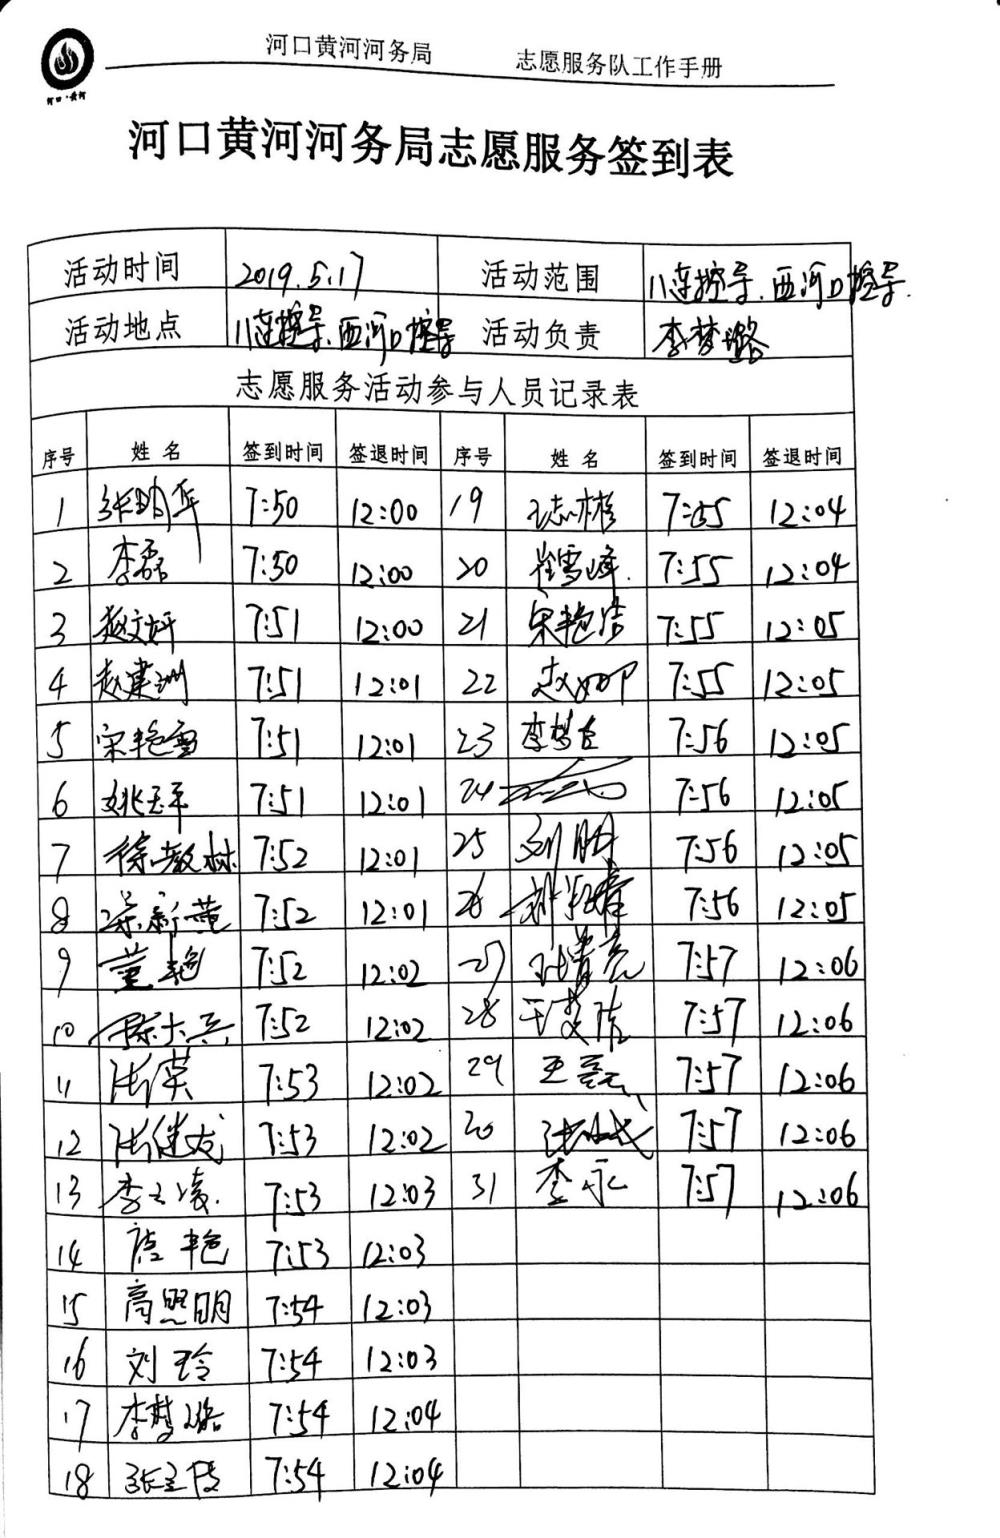 河口·黄河
河口黄河河务局 志愿服务队工作手册
河口黄河河务局志愿服务签到表
活动时间 2019.5.17 活动范围 八连控导.西河口控导.
活动地点 八连控导.西河口控导 活动负责 李梦璐
志愿服务活动参与人员记录表
序号 姓名 签到时间 签退时间 序号 姓名 签到时间 签退时间
1 7:50 12:00 19 王志彬 7:55 12:04
2 李磊 7:50 12:00 20 崔雪峰. 7:55 12:04
3 赵文妍 7:51 12:00 21 宋艳洁 7:55 12:05
4 赵建洲 7:51 12:01 22 7:55 12:05
5 宋艳雪 7:51 12:01 23 李梦 7:56 12:05
6 姚玉平 7:51 12:01 24 7:56 12:05
7 徐敬林 7:52 12:01 25 刘 7:56 12:05
8 新董 7:52 12:01 26 7:56 12:05
9 董艳 7:52 12:02 27 7:57 12:06
10 陈大兵 7:52 12:02 28 7:57 12:06
11 张英 7:53 12:02 29 王磊 7:57 12:06
12 张继发 7:53 12:02 30 7:57 12:06
13 李凌. 7:53 12:03 31 李永 7:57 12:06
14 艳 7:53 12:03
15 高照明 7:54 12:03
16 刘玲 7:54 12:03
17 李梦璐 7:54 12:04
18 张 7:54 12:04